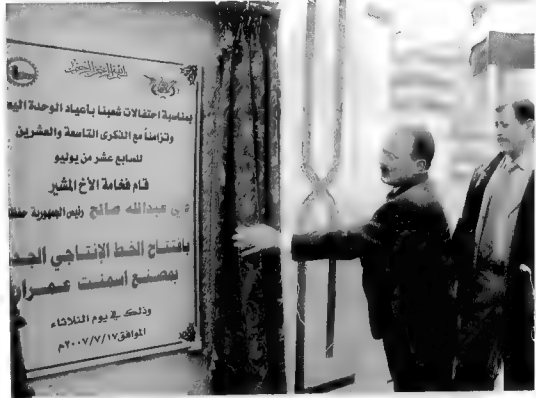 بمناسبة احتفالات شعبنا بأعياد الوحدة
وتزامناً مع الذكرى التاسعة والعشرين
للسابع عشر من يوليو
قام فخامة الأخ المشير
عبدالله صالح رئيس الجمهورية
بافتتاح الخط الإنتاجي
بمصنع اسمنت عمران
وذلك في يوم الثلاثاء
الموافق ٢٠٠٧/٧/١٧م